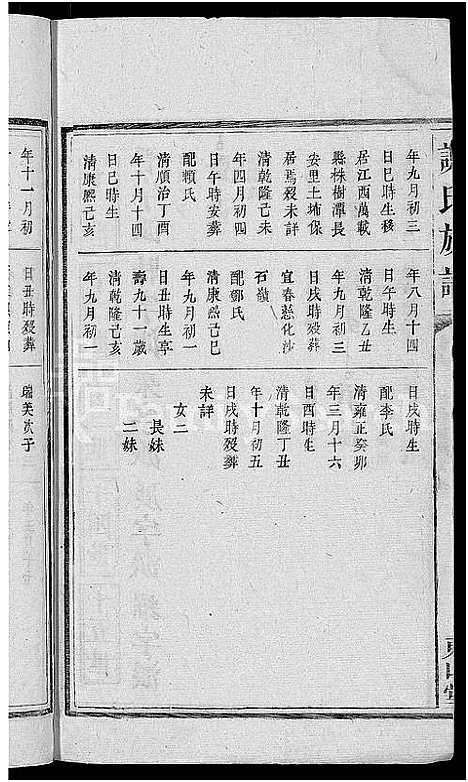 謝氏族譜
年九月初三
日巳時生移
居江西萬載
縣株樹潭長
安里土埇保
居焉歿未詳
清乾隆己未
年四月初四
日午時安葬
配賴氏
清順治丁酉
年十月十四
日巳時生
清康熙己亥
年八月十四
日午時生
清乾隆乙丑
年九月初三
日戌時歿葬
宜春慈化沙
石嶺
配鄒氏
清康熙己巳
年九月初一
日丑時生享
壽九十一歲
清乾隆己亥
年九月初一
日戌時生
配李氏
清雍正癸卯
年三月十六
日酉時生
清乾隆丁丑
年十月初五
日戌時歿葬
未詳
女二
長妹
二妹
年十一月初
日丑時歿葬
瑞美次子